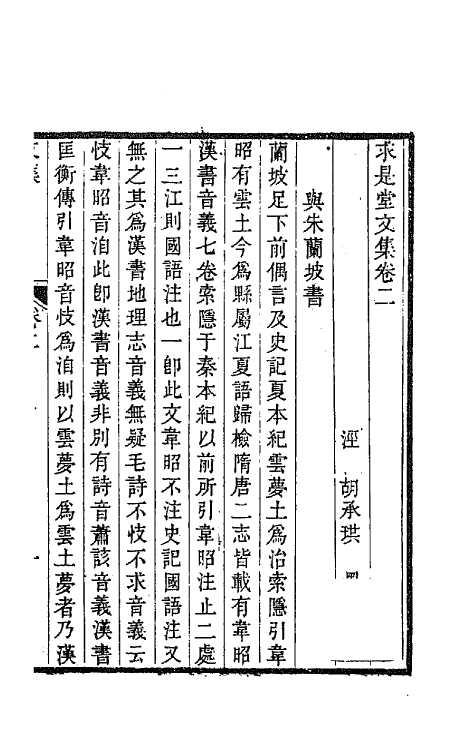 求是堂文集卷二
涇 胡承珙
與朱蘭坡書
蘭坡足下前偶言及史記夏本紀雲夢土爲治索隱引韋
昭有雲土今爲縣屬江夏語歸檢隋唐二志皆載有韋昭
漢書音義七卷索隱于秦本紀以前所引韋昭注止二處
一三江則國語注也一卽此文韋昭不注史記國語注又
無之其爲漢書地理志音義無疑毛詩不忮不求音義云
忮韋昭音洎此卽漢書音義非別有詩音蕭該音義漢書
匡衡傳引韋昭音忮爲洎則以雲夢土爲雲土夢者乃漢
一